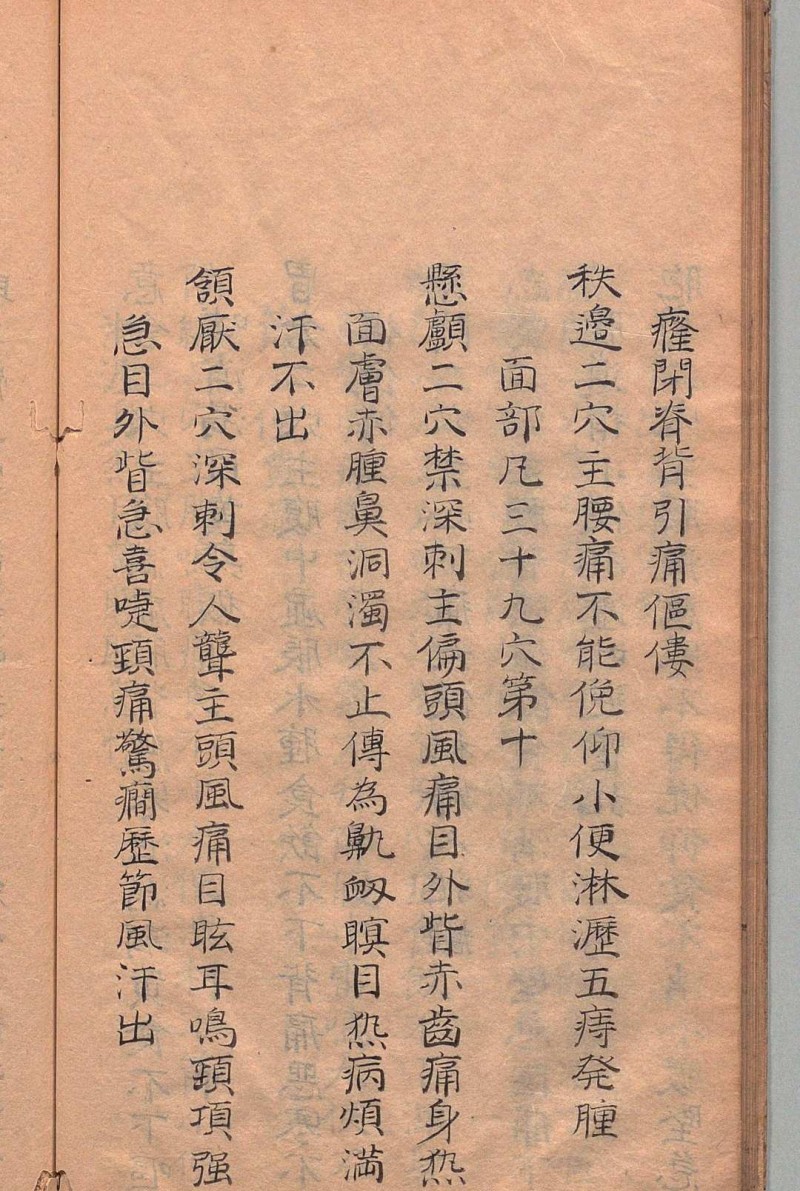 癃閉脊背引痛傴僂
秩邉二穴主腰痛不能俛仰小便淋瀝五痔発腫
面部凡三十九穴第十
懸顱二穴禁深刺主偏頭風痛目外眥赤齒痛身热
面膚赤腫鼻洞濁不止傳為鼽衂瞑目热病煩満
汗不出
頷厭二穴深刺令人聾主頭風痛目眩耳鳴頸項强
急目外眥急喜嚏頸痛驚癇歴節風汗出